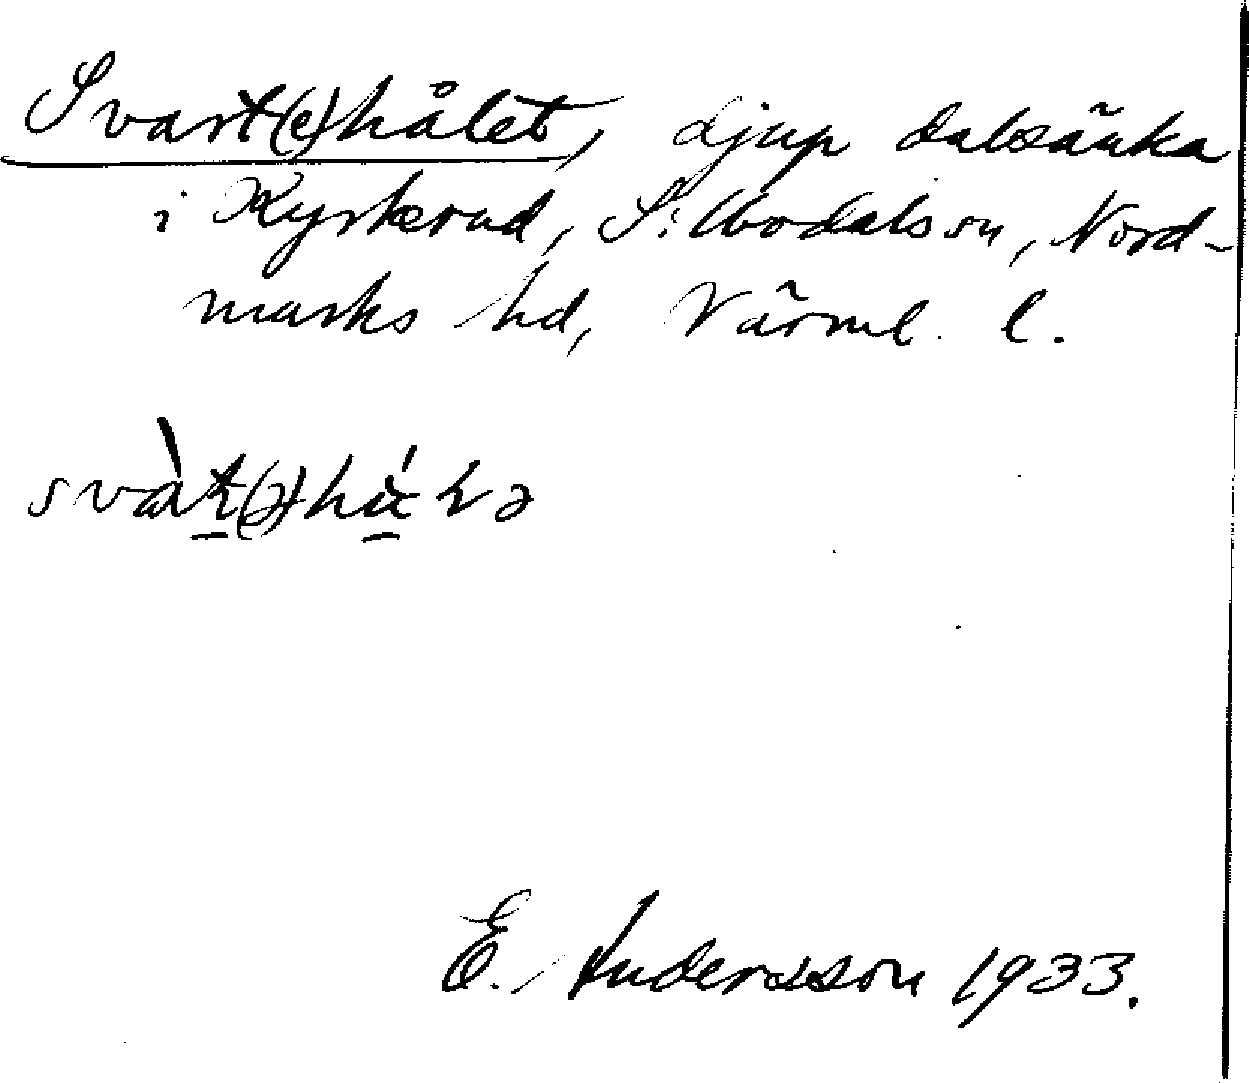 Svart(e)hålet, djup dalsänka
i Kyrkerud, S: Modalson, Nord-
marks hd, Värml. l.
E. Andersson 1933.